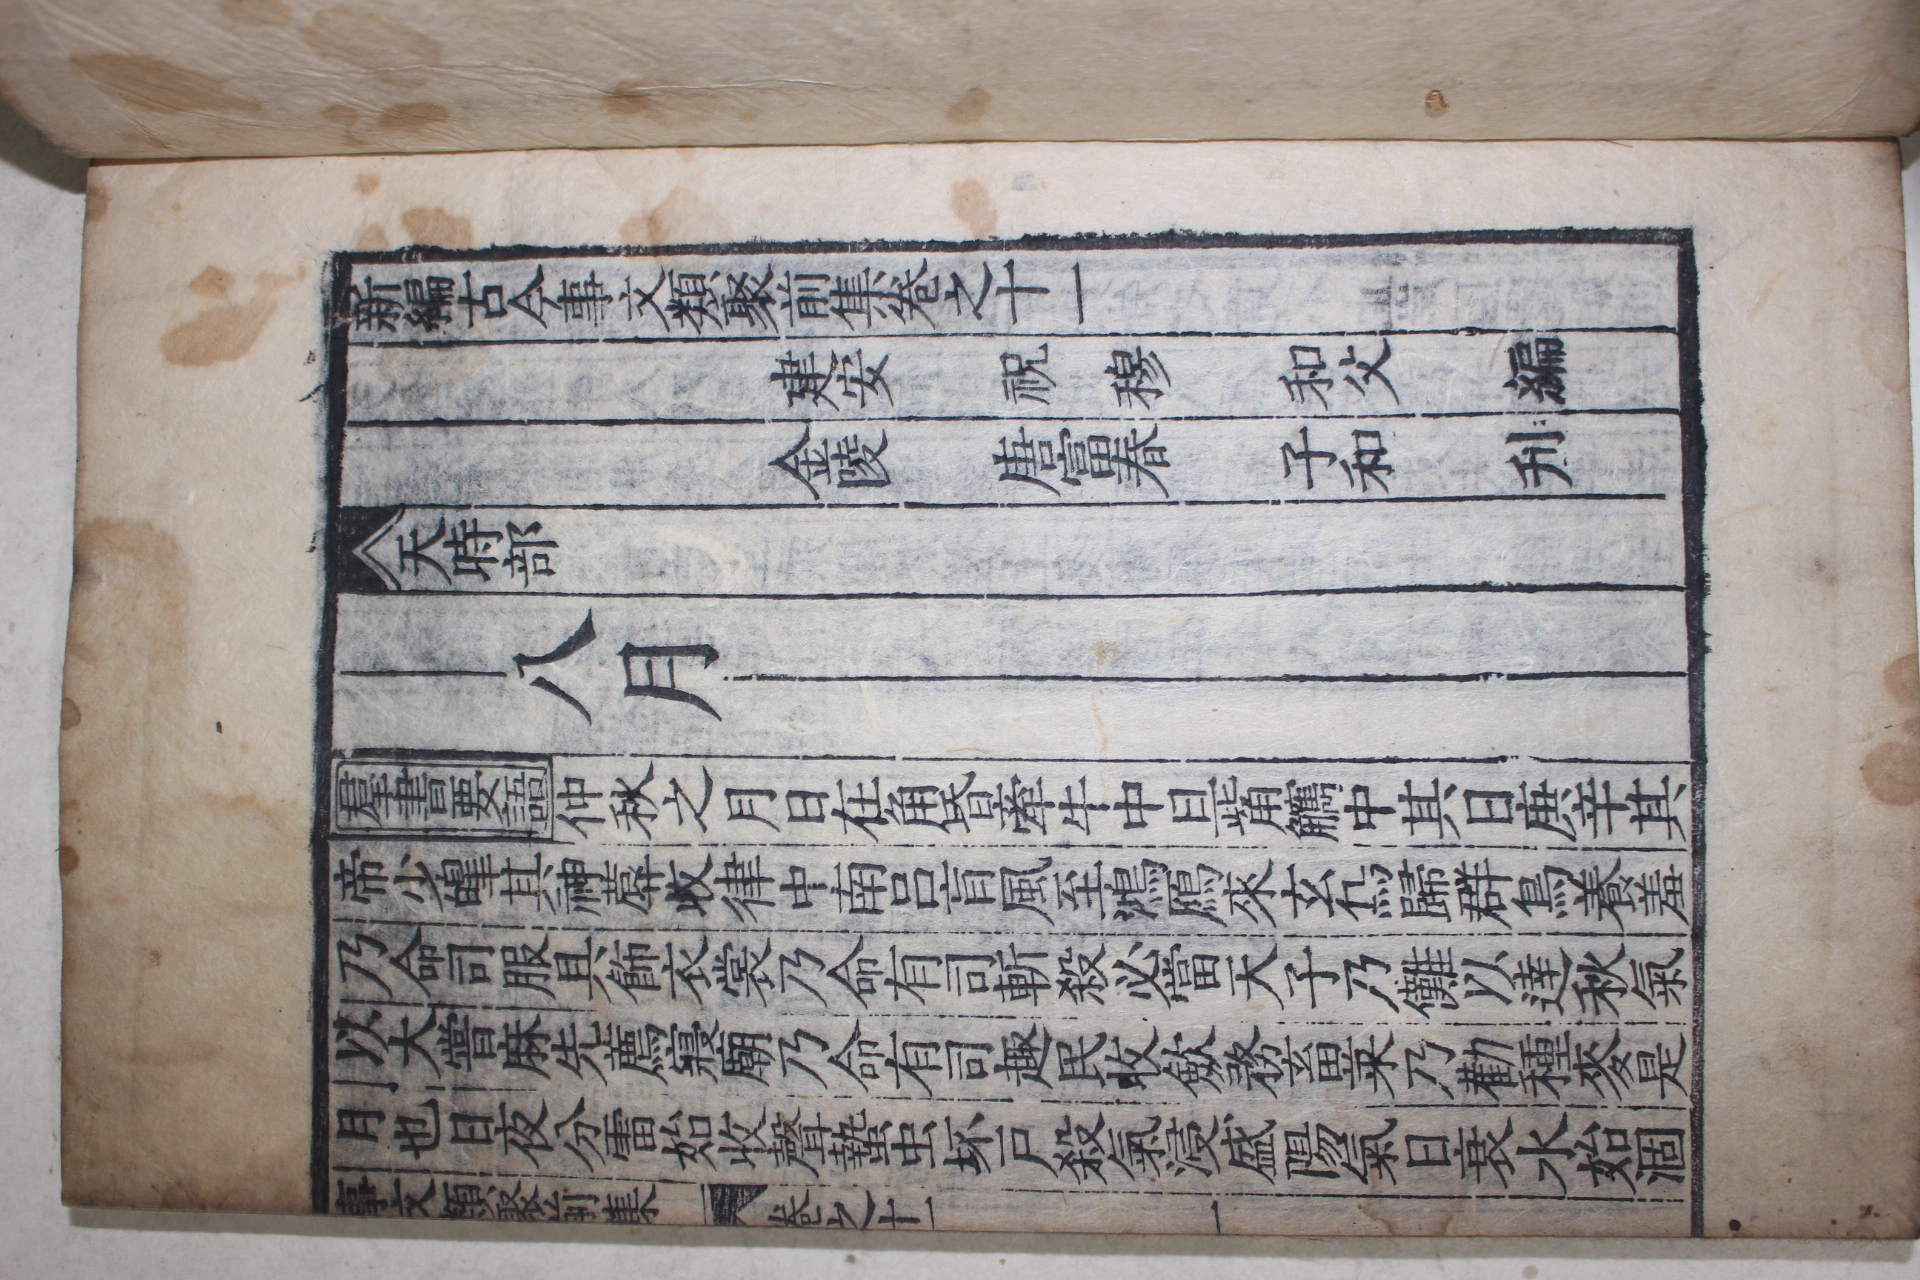 新編古今事文類聚前集卷之十一
建安 祝穆 和父 編
金陵 唐富春 子和 刋
天時部
八月
羣書要語 仲秋之月日在角昏牽牛中旦觜觿中其日庚辛其
帝少皥其神蓐收律中南呂盲風至鴻鴈來玄鳥歸群鳥養羞
乃命司服具飭衣裳乃命有司斬殺必當天子乃儺以達秋氣
以犬嘗麻先薦寢廟乃命有司趣民收斂務畜菜乃勸種麥是
月也日夜分雷始收聲蟄虫坏戶殺氣浸盛陽氣日衰水始涸
事文類聚前集 卷之十一 一